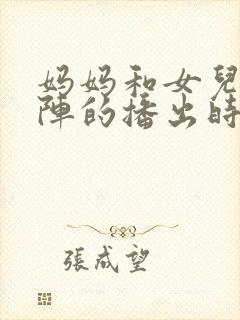 妈妈和女兒
陣的播出時
張成望